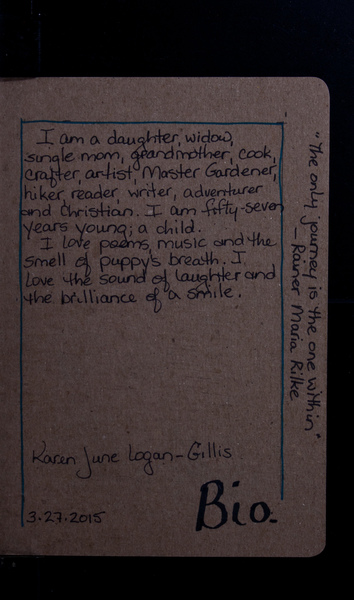 I am a daughter, widow,
single mom, grandmother, cook,
crafter, artist, Master Gardener,
hiker, reader, writer, adventurer
and Christian. I am fifty-seven
years young; a child.
I love poems, music and the
smell of puppy's breath. I
love the sound of laughter and
the brilliance of a smile.
Karen June Logan-Gillis
3.27.2015
Bio.
"The only journey is the one within"
—Rainer Maria Rilke